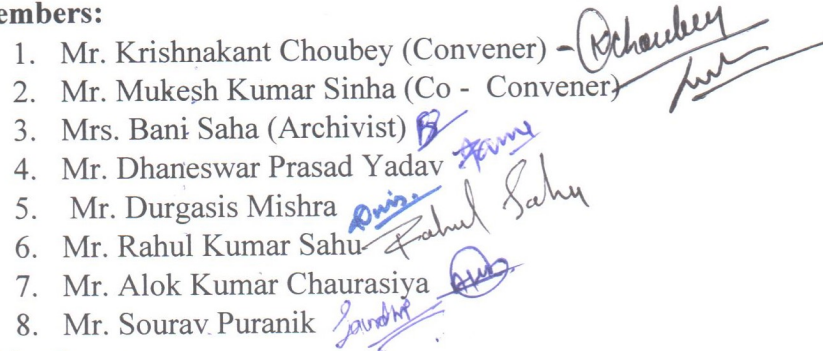 embers:
1. Mr. Krishnakant Choubey (Convener) - KChoubey
2. Mr. Mukesh Kumar Sinha (Co - Convener)
3. Mrs. Bani Saha (Archivist)
4. Mr. Dhaneswar Prasad Yadav
5. Mr. Durgasis Mishra
6. Mr. Rahul Kumar Sahu Rahul Sahu
7. Mr. Alok Kumar Chaurasiya
8. Mr. Sourav Puranik